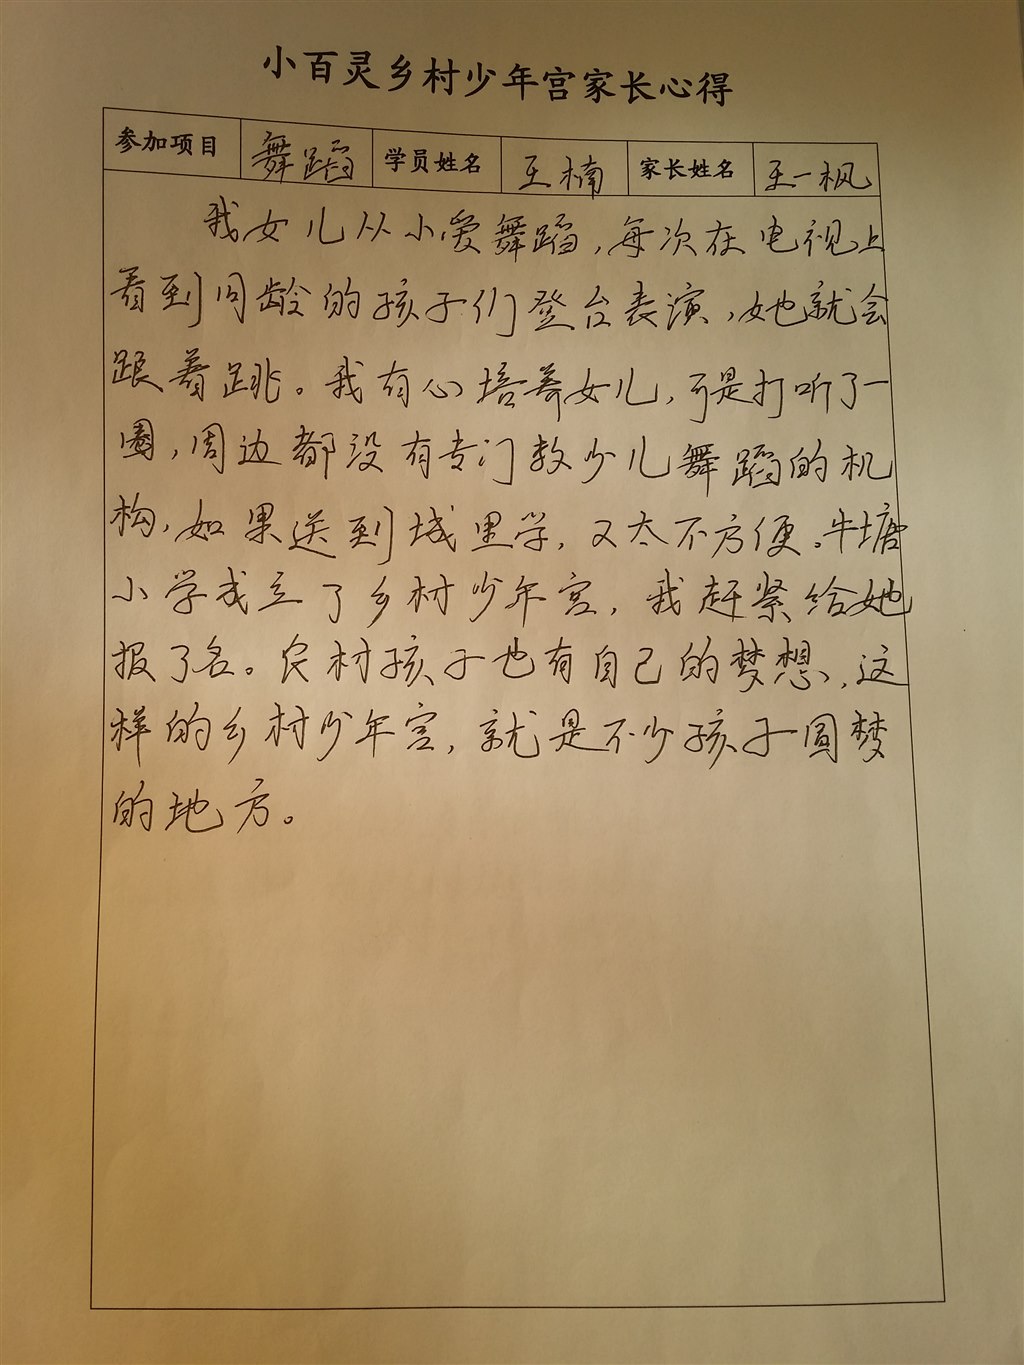 小百灵乡村少年宫家长心得
参加项目 舞蹈 学员姓名 王楠 家长姓名 王一枫
我女儿从小爱舞蹈，每次在电视上
看到同龄的孩子们登台表演，她就会
跟着跳。我有心培养女儿，可是打听了一
圈，周边都没有专门教少儿舞蹈的机
构，如果送到城里学，又太不方便。牛塘
小学成立了乡村少年宫，我赶紧给她
报了名。农村孩子也有自己的梦想，这
样的乡村少年宫，就是不少孩子圆梦
的地方。